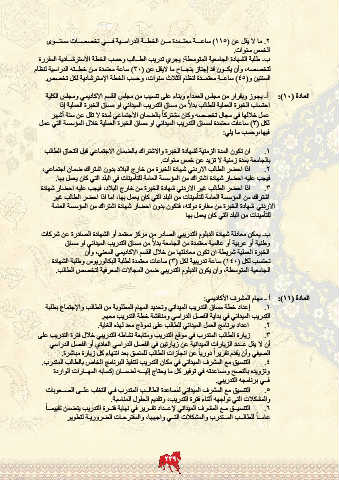 ٢. ما لا يقل عن (١١٥) ساعة معتمدة من الخطة الدراسية في تخصصات مستوى
الخمس سنوات.
ب. طلبة الشهادة الجامعية المتوسطة: يجري تدريب الطالب وحسب الخطة الاسترشادية المقررة
لتخصصه، وأن يكون قد إجتاز بنجاح ما لايقل عن (٣٠) ساعة معتمدة من خطته الدراسية لنظام
السنتين و(٤٥) ساعة معتمدة لنظام الثلاث سنوات، وحسب الخطة الإسترشادية لكل تخصص.
المادة (١٠): أ. يجوز وبقرار من مجلس العمداء وبناء على تنسيب من مجلس القسم الأكاديمي ومجلس الكلية
احتساب الخبرة العملية للطالب بدلاً من مساق التدريب الميداني أو مساق الخبرة العملية إذا
عمل خلالها في مجال تخصصه وكان مشتركاً بالضمان الاجتماعي لمدة لا تقل عن ستة أشهر
لكل (٣) ساعات معتمدة لمساق التدريب الميداني أو مساق الخبرة العملية خلال المؤسسة التي عمل
فيها وحسب ما يلي:
١. أن تكون المدة الزمنية لشهادة الخبرة والاشتراك بالضمان الاجتماعي قبل التحاق الطالب
بالجامعة بمدة زمنية لا تزيد عن خمس سنوات.
٢. اذا احضر الطالب الاردني شهادة الخبرة من خارج البلاد بدون اشتراك ضمان اجتماعي،
فيجب عليه احضار شهادة اشتراك من المؤسسة العامة للتأمينات في البلد التي كان يعمل بها.
٣. اذا احضر الطالب غير الاردني شهادة الخبرة من خارج البلاد، فيجب عليه احضار شهادة
اشتراك من المؤسسة العامة للتأمينات من البلد التي كان يعمل بها، اما اذا احضر الطالب غير
الاردني شهادة الخبرة من سفارة دولته، فتكون بدون احضار شهادة اشتراك من المؤسسة العامة
للتأمينات من البلد التي كان يعمل بها
ب. يمكن معادلة شهادة الدبلوم التدريبي الصادر من مركز معتمد أو الشهادة الصادرة عن شركات
وطنية أو عربية أو عالمية معتمدة من الجامعة بدلاً من مساق التدريب الميداني أو مساق
الخبرة العملية شريطة أن تكون معادلتها من خلال القسم الأكاديمي المعني، وأن
تحتسب لكل (١٤٠) ساعة تدريبية لكل (٣) ساعات معتمدة لطلبة البكالوريوس وطلبة الشهادة
الجامعية المتوسطة، وأن يكون الدبلوم التدريبي ضمن المجالات المعرفية لتخصص الطالب.
المادة (١١): أ. مهام المشرف الأكاديمي:
١. إعداد خطة مساق التدريب الميداني وتحديد المهام المطلوبة من الطالب والإجتماع بطلبة
التدريب الميداني في بداية الفصل الدراسي ومناقشة خطة التدريب معهم.
٢. اعداد برنامج العمل الميداني للطالب على نموذج معد لهذه الغاية.
٣. زيارة الطالب المتدرب في موقع التدريب ومتابعة نشاطه التدريبي خلال فترة التدريب على
أن لا يقل عدد الزيارات الميدانية عن زيارتين في الفصل الدراسي العادي أو الفصل الدراسي
الصيفي وأن يقدم تقريراً دورياً عن انجازات الطالب للمنسق بعد انتهاء كل زيارة مباشرة.
٤. التنسيق مع المشرف الميداني في مكان التدريب لتنفيذ البرنامج الخاص بالطالب المتدرب
وتزويده بالنصح ومساعدته في توفير كل ما يحتاج إليه لضمان إكسابه المهارات الواردة
في برنامجه التدريبي.
٥. التنسيق مع المشرف الميداني لمساعدة الطالب المتدرب في التغلب على الصعوبات
والمشكلات التي تواجهه أثناء فترة التدريب، وتقديم الحلول المناسبة.
٦. التنسيق مع المشرف الميداني لإعداد تقرير في نهاية فترة التدريب يتضمن تقييماً
عاماً للطالب المتدرب والمشكلات التي واجهها، والمقترحات الضرورية لتطوير